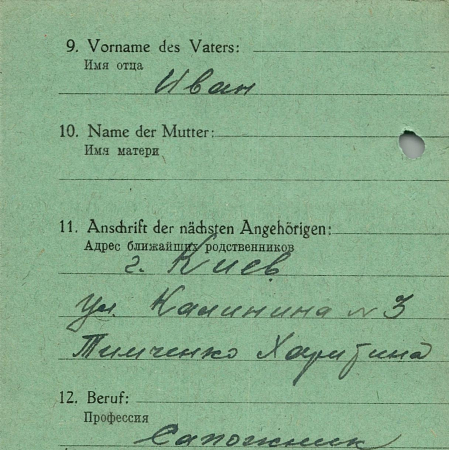 9. Vorname des Vaters:
Имя отца
Иван
10. Name der Mutter:
Имя матери
11. Anschrift der nächsten Angehörigen:
Адрес ближайших родственников
г. Киев
ул. Калинина № 3
Тимченко Харитина
12. Beruf:
Профессия
Сапожник